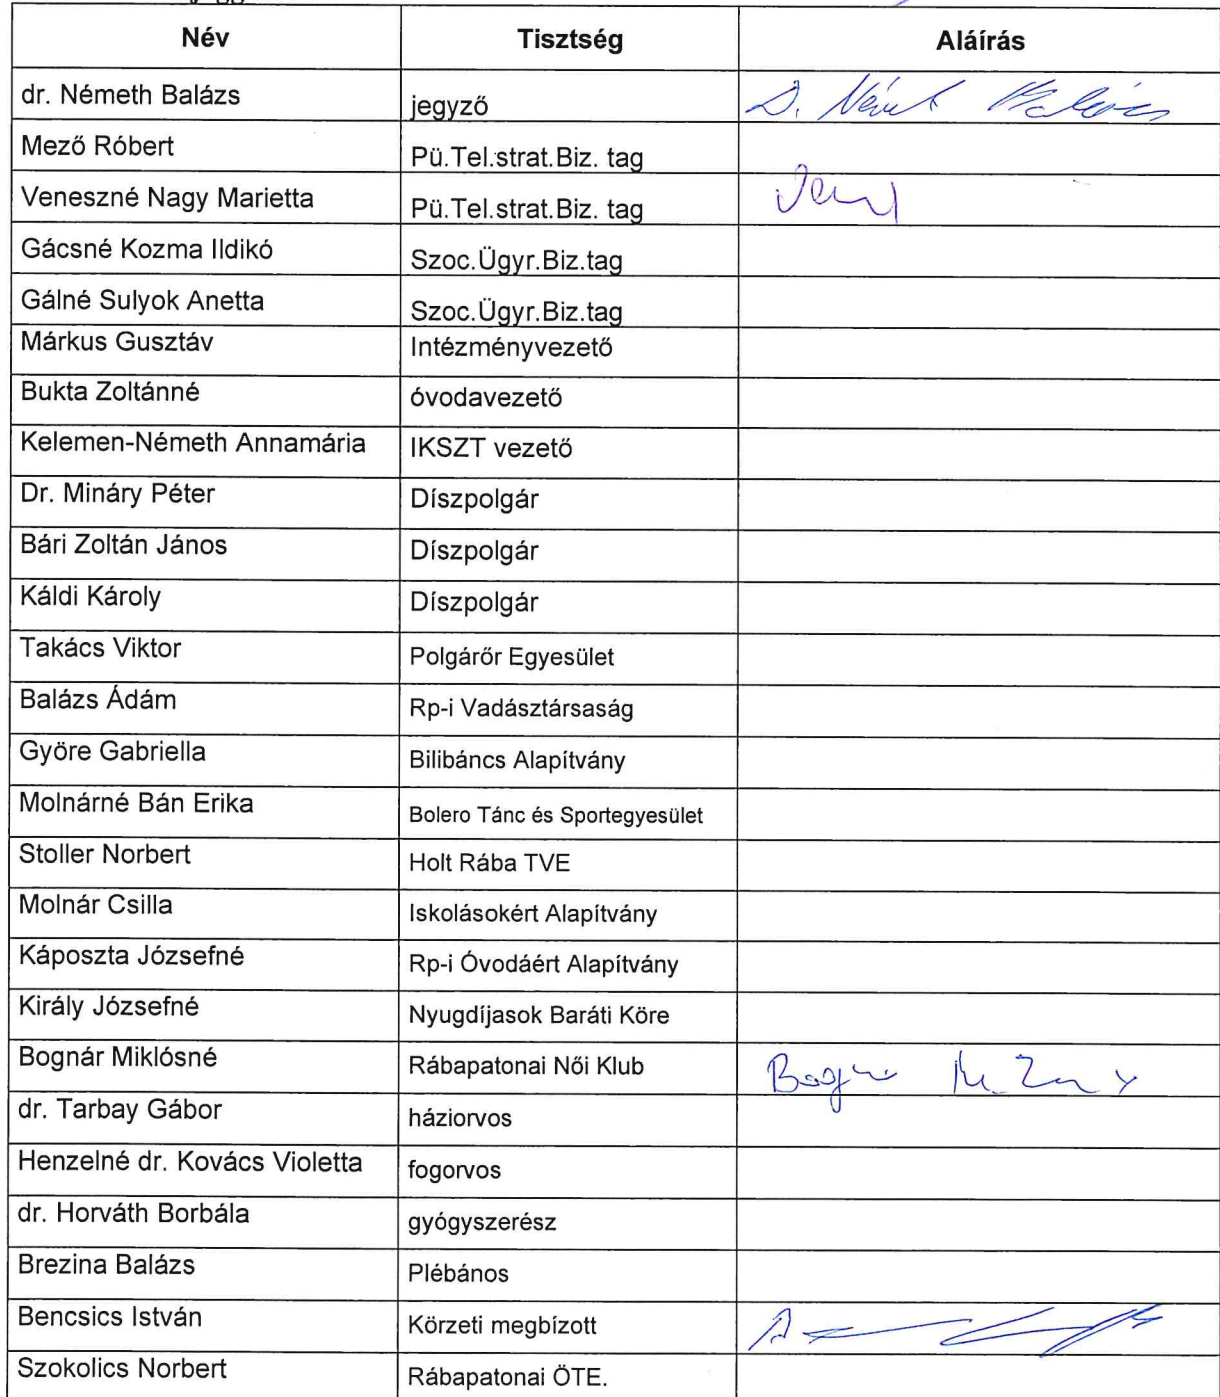 Név Tisztség Aláírás
dr. Németh Balázs jegyző D. Németh Balázs
Mező Róbert Pü.Tel.strat.Biz. tag
Veneszné Nagy Marietta Pü.Tel.strat.Biz. tag
Gácsné Kozma Ildikó Szoc.Ügyr.Biz.tag
Gálné Sulyok Anetta Szoc.Ügyr.Biz.tag
Márkus Gusztáv Intézményvezető
Bukta Zoltánné óvodavezető
Kelemen-Németh Annamária IKSZT vezető
Dr. Mináry Péter Díszpolgár
Bári Zoltán János Díszpolgár
Káldi Károly Díszpolgár
Takács Viktor Polgárőr Egyesület
Balázs Ádám Rp-i Vadásztársaság
Györe Gabriella Bilibáncs Alapítvány
Molnárné Bán Erika Bolero Tánc és Sportegyesület
Stoller Norbert Holt Rába TVE
Molnár Csilla Iskolásokért Alapítvány
Káposzta Józsefné Rp-i Óvodáért Alapítvány
Király Józsefné Nyugdíjasok Baráti Köre
Bognár Miklósné Rábapatonai Női Klub
dr. Tarbay Gábor háziorvos
Henzelné dr. Kovács Violetta fogorvos
dr. Horváth Borbála gyógyszerész
Brezina Balázs Plébános
Bencsics István Körzeti megbízott
Szokolics Norbert Rábapatonai ÖTE.